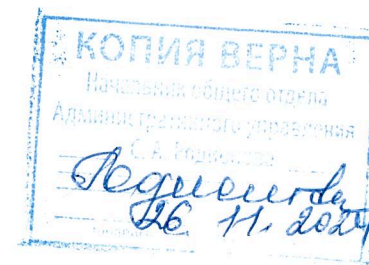 КОПИЯ ВЕРНА
Начальник общего отдела
Административного управления
С. А. Родионова
26 11. 2024